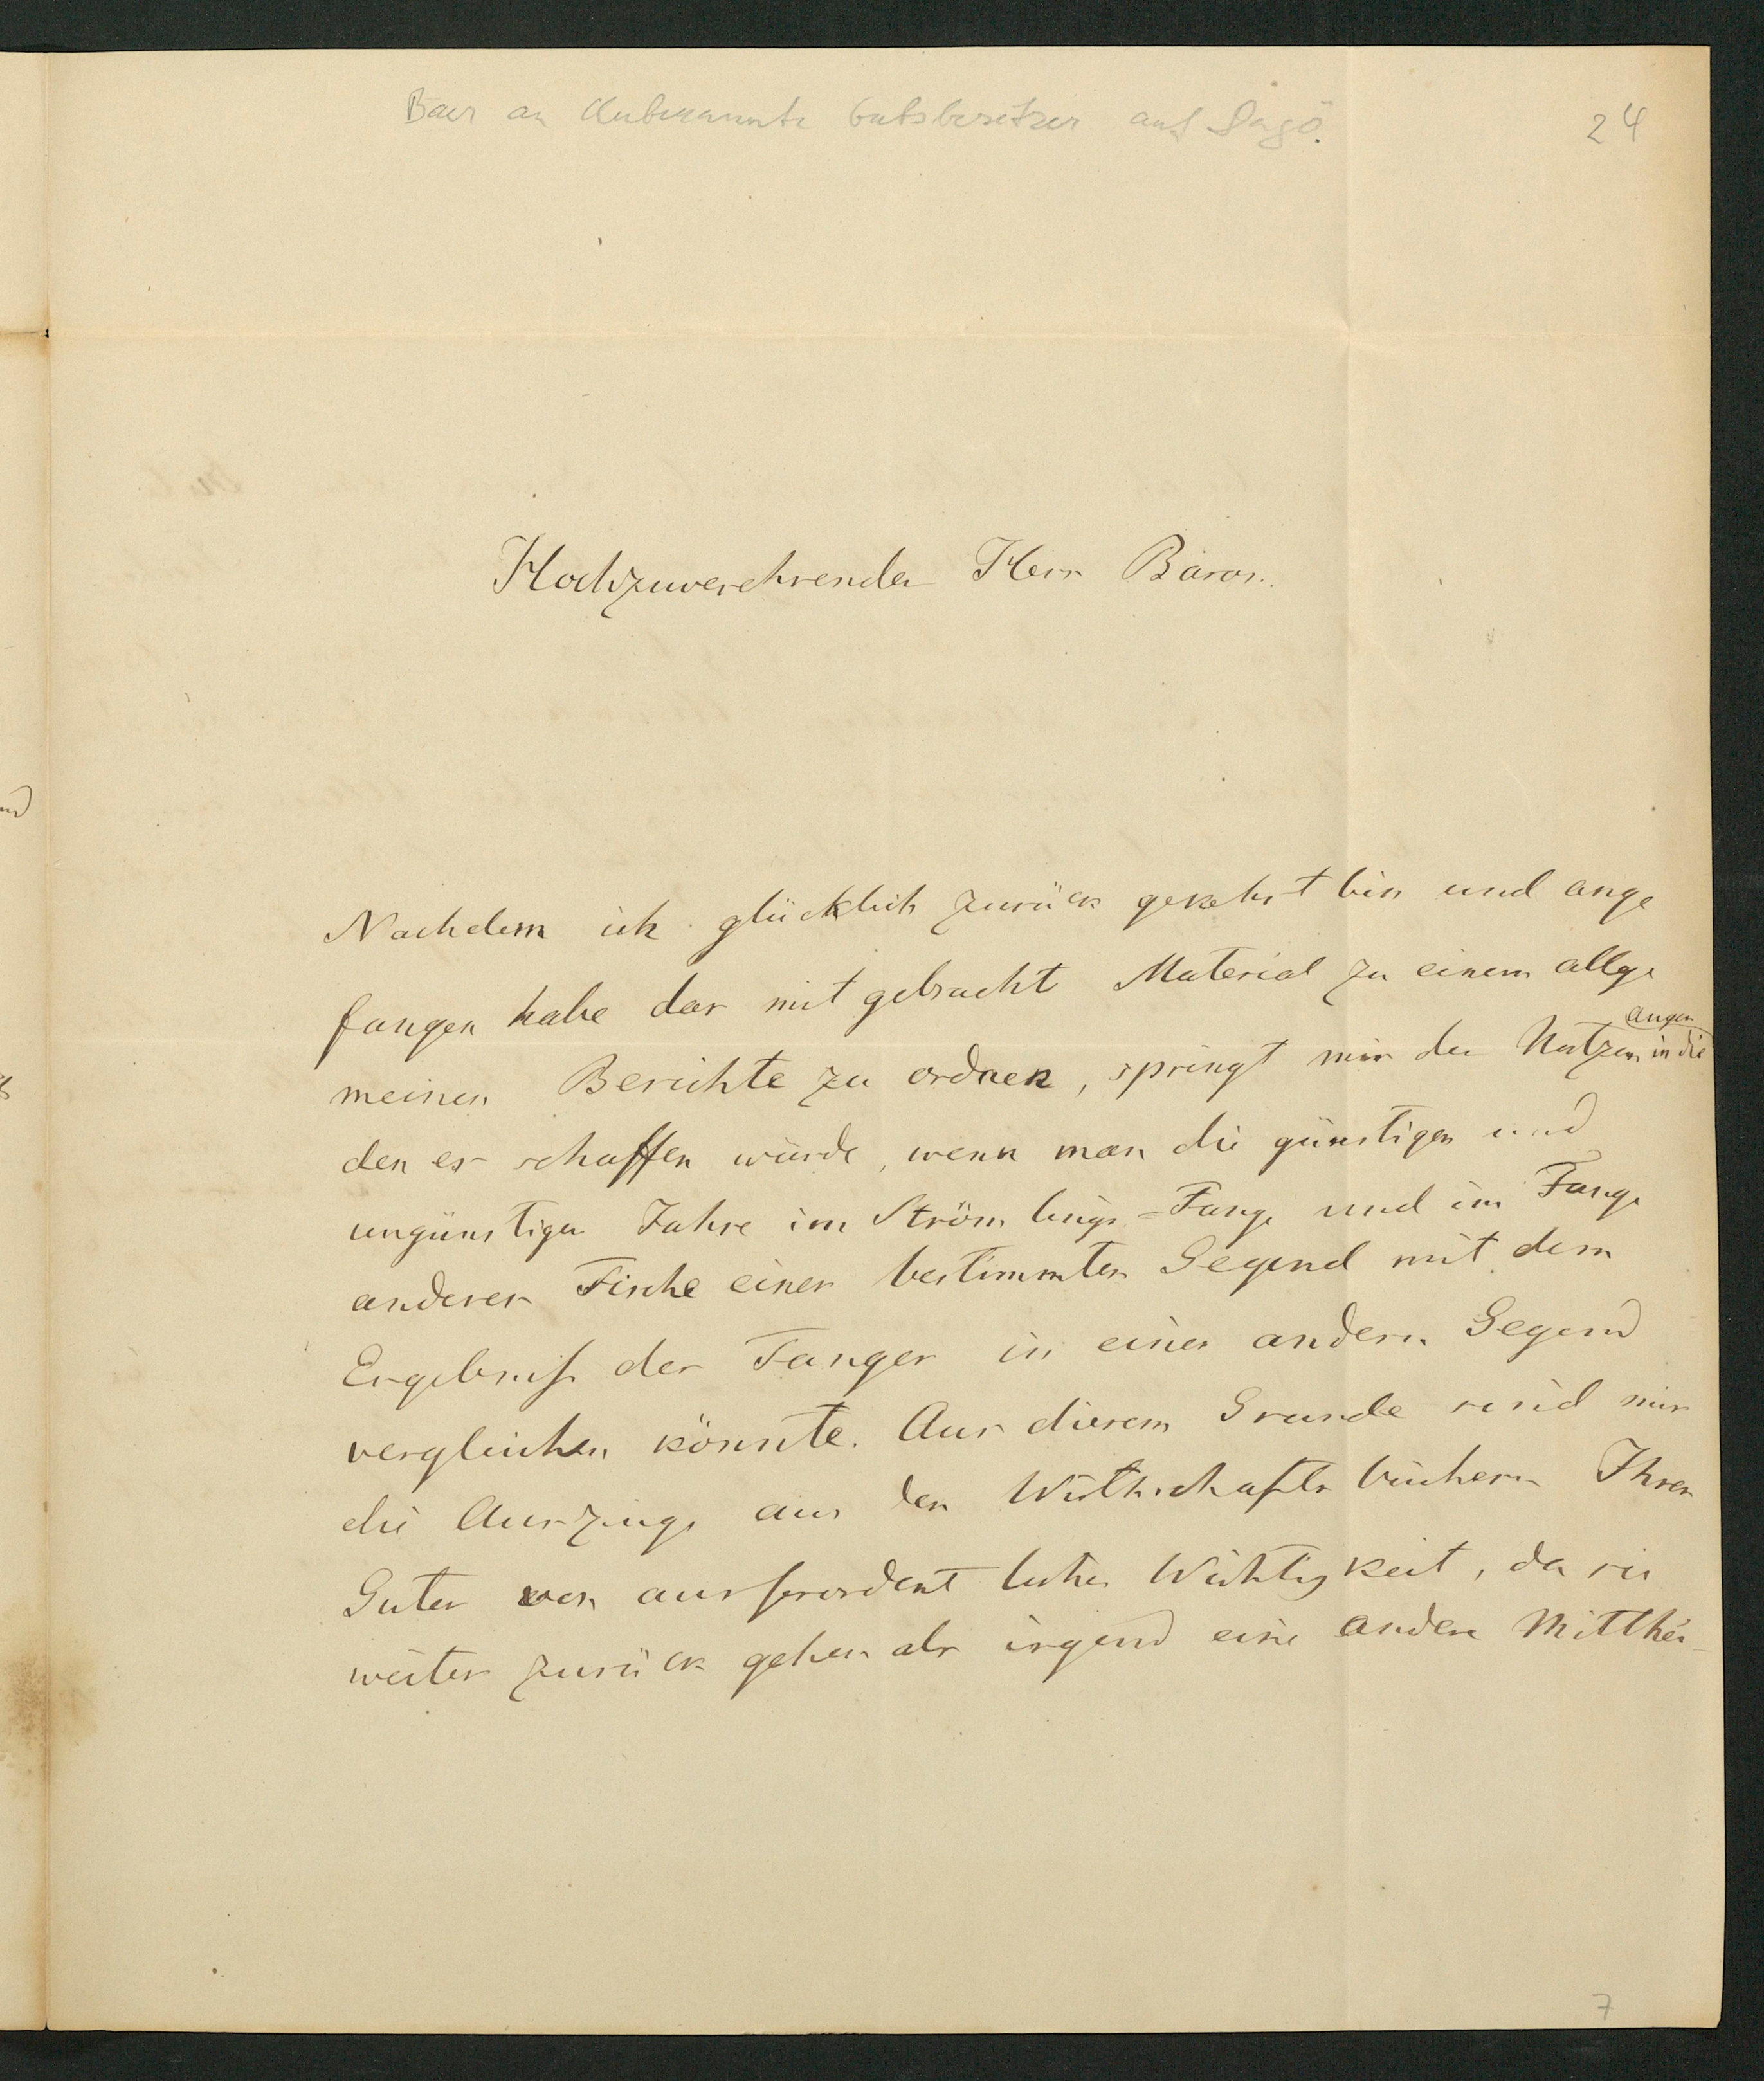 Baer an Unbekannte Gutsbesitzer auf Dagö.
24
Hochzuverehrender Herr Baron.
Nachdem ich glücklich zurück gekehrt bin und ange
fangen habe das mit gebracht Material zu einem allge
meinen Berichte zu ordnen, springt mir der Nutzen in die Augen
den es schaffen würde, wenn man die günstigen und
ungünstigen Jahre im Strömlings=Fange und im Fange
anderer Fische einer bestimmten Gegend mit dem
Ergebniß des Fanges in einer andern Gegend
vergleichen könnte. Aus diesem Grunde sind mir
die Auszüge aus den Wirthschafts büchern Ihrer
Güter von ausserordent licher Wichtigkeit, da sie
weiter zurück gehen als irgend eine andere Mitthei-
7